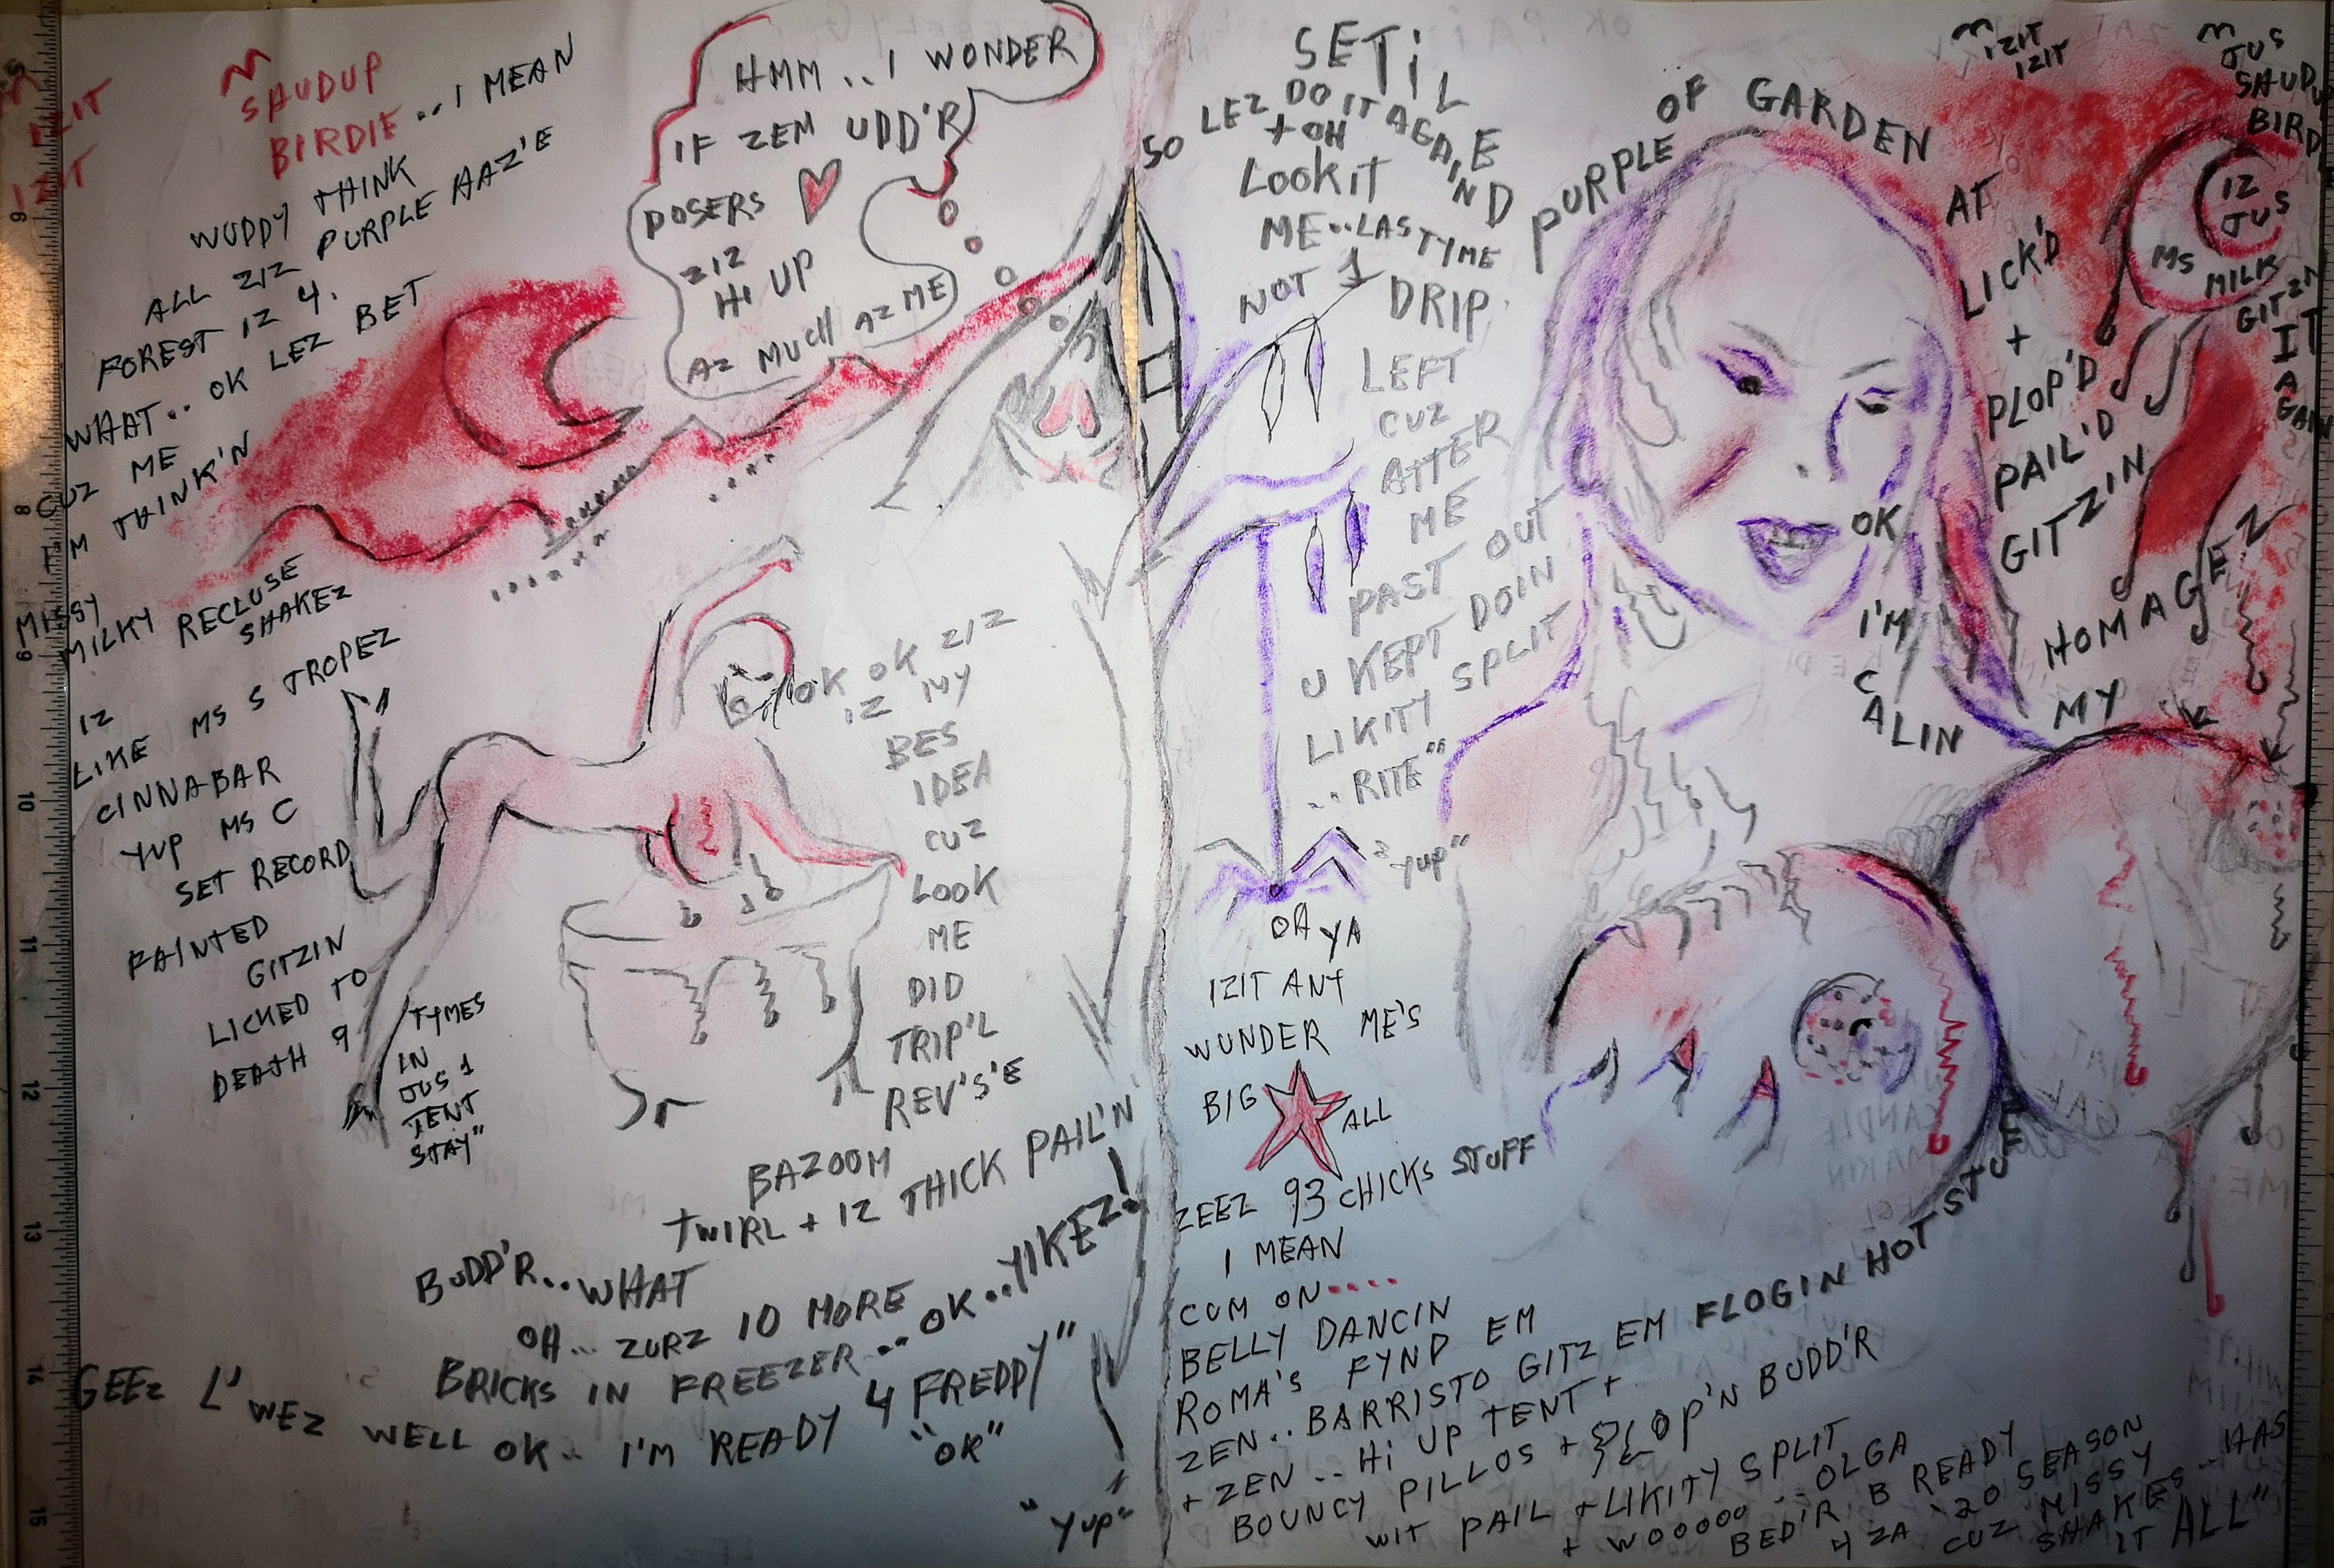 IZIT
IZIT
SAUDUP
BIRDIE .. I MEAN
WUDDY THINK
ALL ZIZ PURPLE HAZ'E
FOREST IZ 4.
WHAT .. OK LEZ BET
CUZ ME
I'M THINK'N
MISSY
MILKY RECLUSE
SHAKEZ
IZ
LIKE MS S TROPEZ
CINNABAR
YUP MS C
SET RECORD
PAINTED
GITZIN
LICKED TO
DEATH 9
TYMES
IN
JUS 1
TENT
STAY"
HMM .. I WONDER
IF ZEM UDD'R
POSERS
ZIZ
HI UP
AZ MUCH AZ ME
OK OK ZIZ
IZ MY
BES
IDEA
CUZ
LOOK
ME
DID
TRIP'L
REV'S'E
BAZOOM
TWIRL + IZ THICK PAIL'N
BUDD'R .. WHAT
OH .. ZURZ 10 MORE
BRICKS IN FREEZER .. OK .. YIKEZ!
GEEZ L' WEZ WELL OK .. I'M READY 4 FREDDY"
"OK"
"YUP"
SETIL
SO LEZ DO IT AGAIN
+ OH
LOOKIT
ME .. LAS TYME
NOT 1
DRIP
LEFT
CUZ
AITER
ME
PAST OUT
U KEPT DOIN
LIKITY SPLIT
.. RITE"
"YUP"
OH YA
IZIT ANY
WUNDER ME'S
BIG
ALL
ZEEZ 93 CHICKS STUFF
I MEAN
CUM ON ....
BELLY DANCIN
ROMA'S FYND EM
ZEN .. BARRISTO GITZ EM FLOGIN HOT STUFF
+ ZEN .. HI UP TENT +
BOUNCY PILLOS + PLOP'N BUDD'R
WIT PAIL + LIKITY SPLIT
+ WOOOOO .. OLGA
BED'R B READY
4 ZA '20 SEASON
CUZ MISSY
SHAKES .. HAS
IT ALL"
PURPLE OF GARDEN
AT
LICK'D
+
PLOP'D
PAIL'D
GITZ'IN
HOMAGEZ
MY
OK
I'M
CALIN
IZIT
IZIT
JUS
SAUDU
BIRD
IZ
JUS
MS
MILK
GITZIN
IT
AGAIN